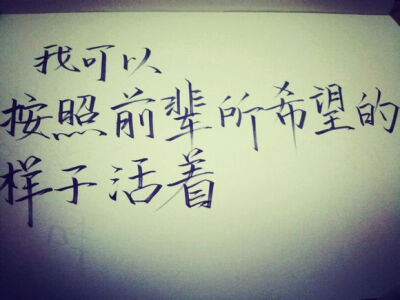 我可以
按照前辈所希望的
样子活着